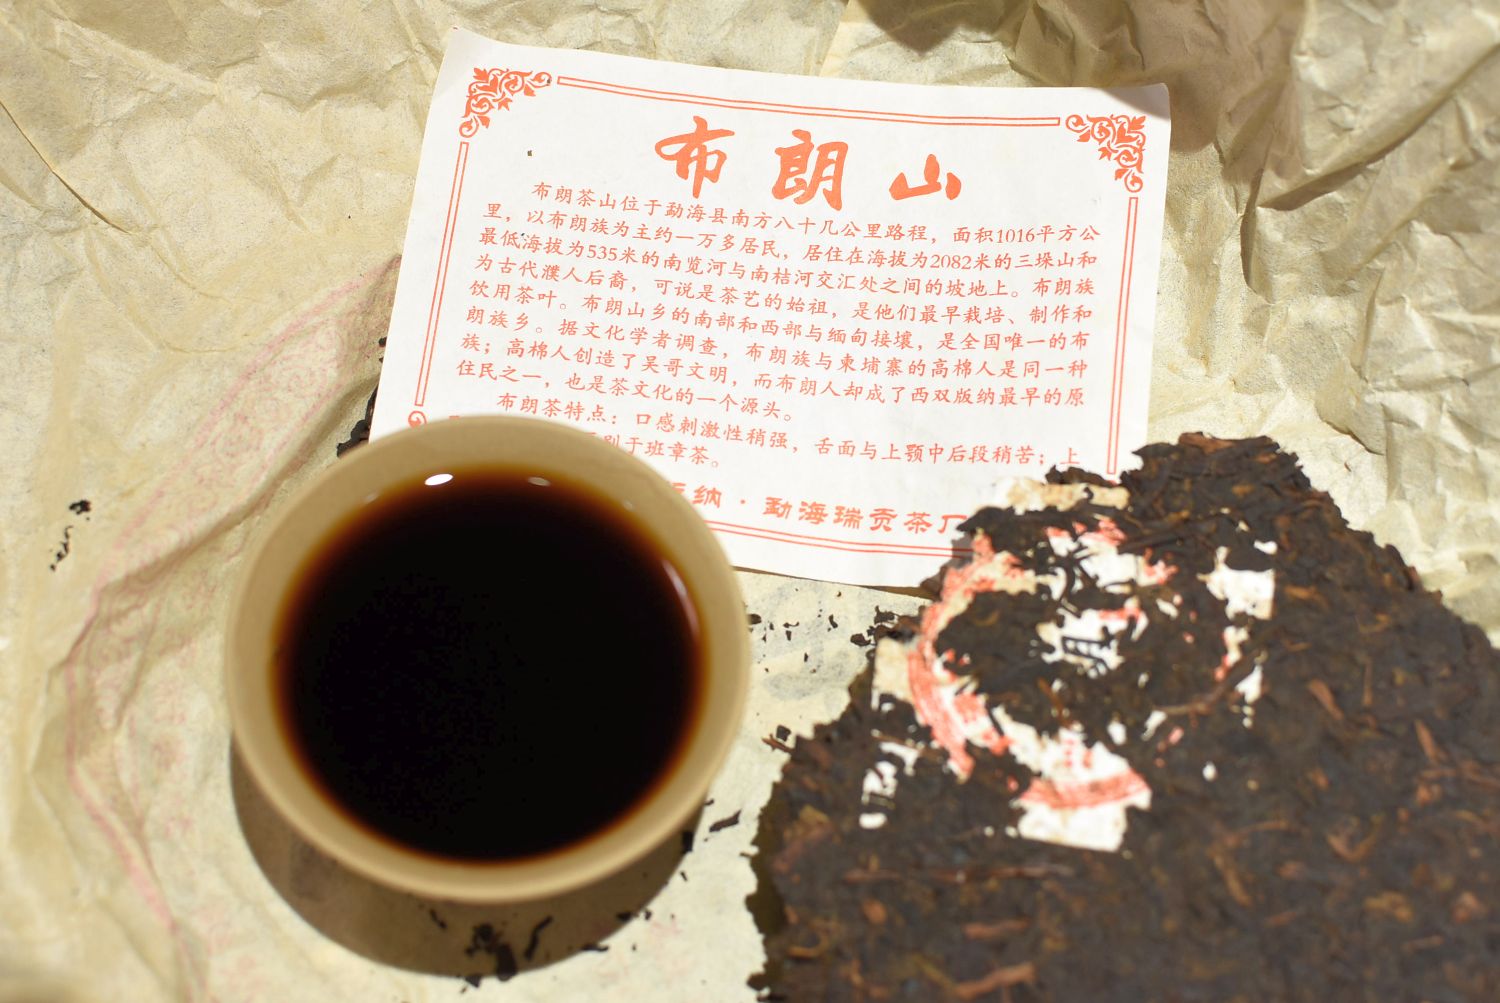 布朗山
布朗茶山位于勐海县南方八十几公里路程，面积1016平方公
里，以布朗族为主约一万多居民，居住在海拔为2082米的三垛山和
最低海拔为535米的南览河与南桔河交汇处之间的坡地上。布朗族
为古代濮人后裔，可说是茶艺的始祖，是他们最早栽培、制作和
饮用茶叶。布朗山乡的南部和西部与缅甸接壤，是全国唯一的布
朗族乡。据文化学者调查，布朗族与柬埔寨的高棉人是同一种
族；高棉人创造了吴哥文明，而布朗人却成了西双版纳最早的原
住民之一，也是茶文化的一个源头。
布朗茶特点：口感刺激性稍强，舌面与上颚中后段稍苦；上
别于班章茶。
版纳·勐海瑞贡茶厂